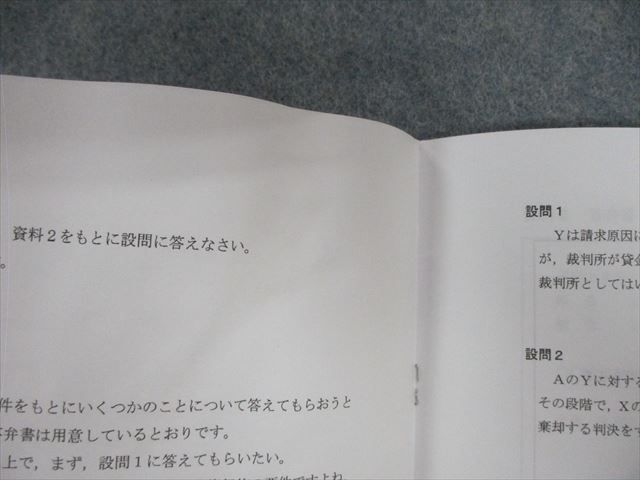 資料2をもとに設問に答えなさい。
。
件をもとにいくつかのことについて答えてもらおうと
弁書は用意しているとおりです。
上で，まず，設問1に答えてもらいたい。
設問1
Yは請求原因に
が，裁判所が貸金
裁判所としてはい
設問2
AのYに対する
その段階で，Xの
棄却する判決をす